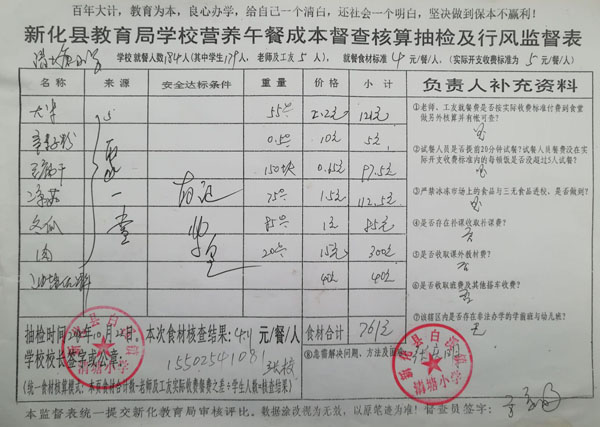 百年大计，教育为本，良心办学，给自己一个清白，还社会一个明白，坚决做到保本不赢利！
新化县教育局学校营养午餐成本督查核算抽检及行风监督表
学校就餐人数184人(其中学生179人，老师及工友5人)，就餐食材标准4元/餐/人，(实际开支收费标准为5元/餐/人)
名称 来源 安全达标条件 重量 价格 小计 负责人补充资料
55 2.2元 121元
0.5 10元 5元
150块 0.65元 97.5元
75 1.5元 112.5元
冬瓜 85 1元 85元
肉 20 15元 300元
40元 40元
①老师、工友就餐费是否按实际收费标准付到食堂
做另外核算并有帐可查？
②试餐人员是否提前20分钟试餐？试餐人员餐费没在实
际开支收费标准内的每顿饭是否没超过5人试餐？
③严禁冰冻市场上的食品与三无食品进校，是否做到？
④是否存在补课收取补课费？
否
⑤是否收取课外教材费？
否
⑥是否收取班费及其他搭车收费？
否
⑦该辖区内是否存在非法办学的学前班与幼儿班？
无
抽检时间 10月22日 本次食材核查结果：4.1元/餐/人 食材合计 761元
学校校长签字或公章： 15502541081
⑧急需解决问题，方法及
(统一食材核算模式：本页食材合计数-老师及工友实际收费餐费之差÷学生人数=核查结果)
本监督表统一提交新化教育局审核评比。数据涂改视为无效，以原笔迹为准！督查员签字：
新化县白溪镇
清塘小学
新化县白溪镇
清塘小学